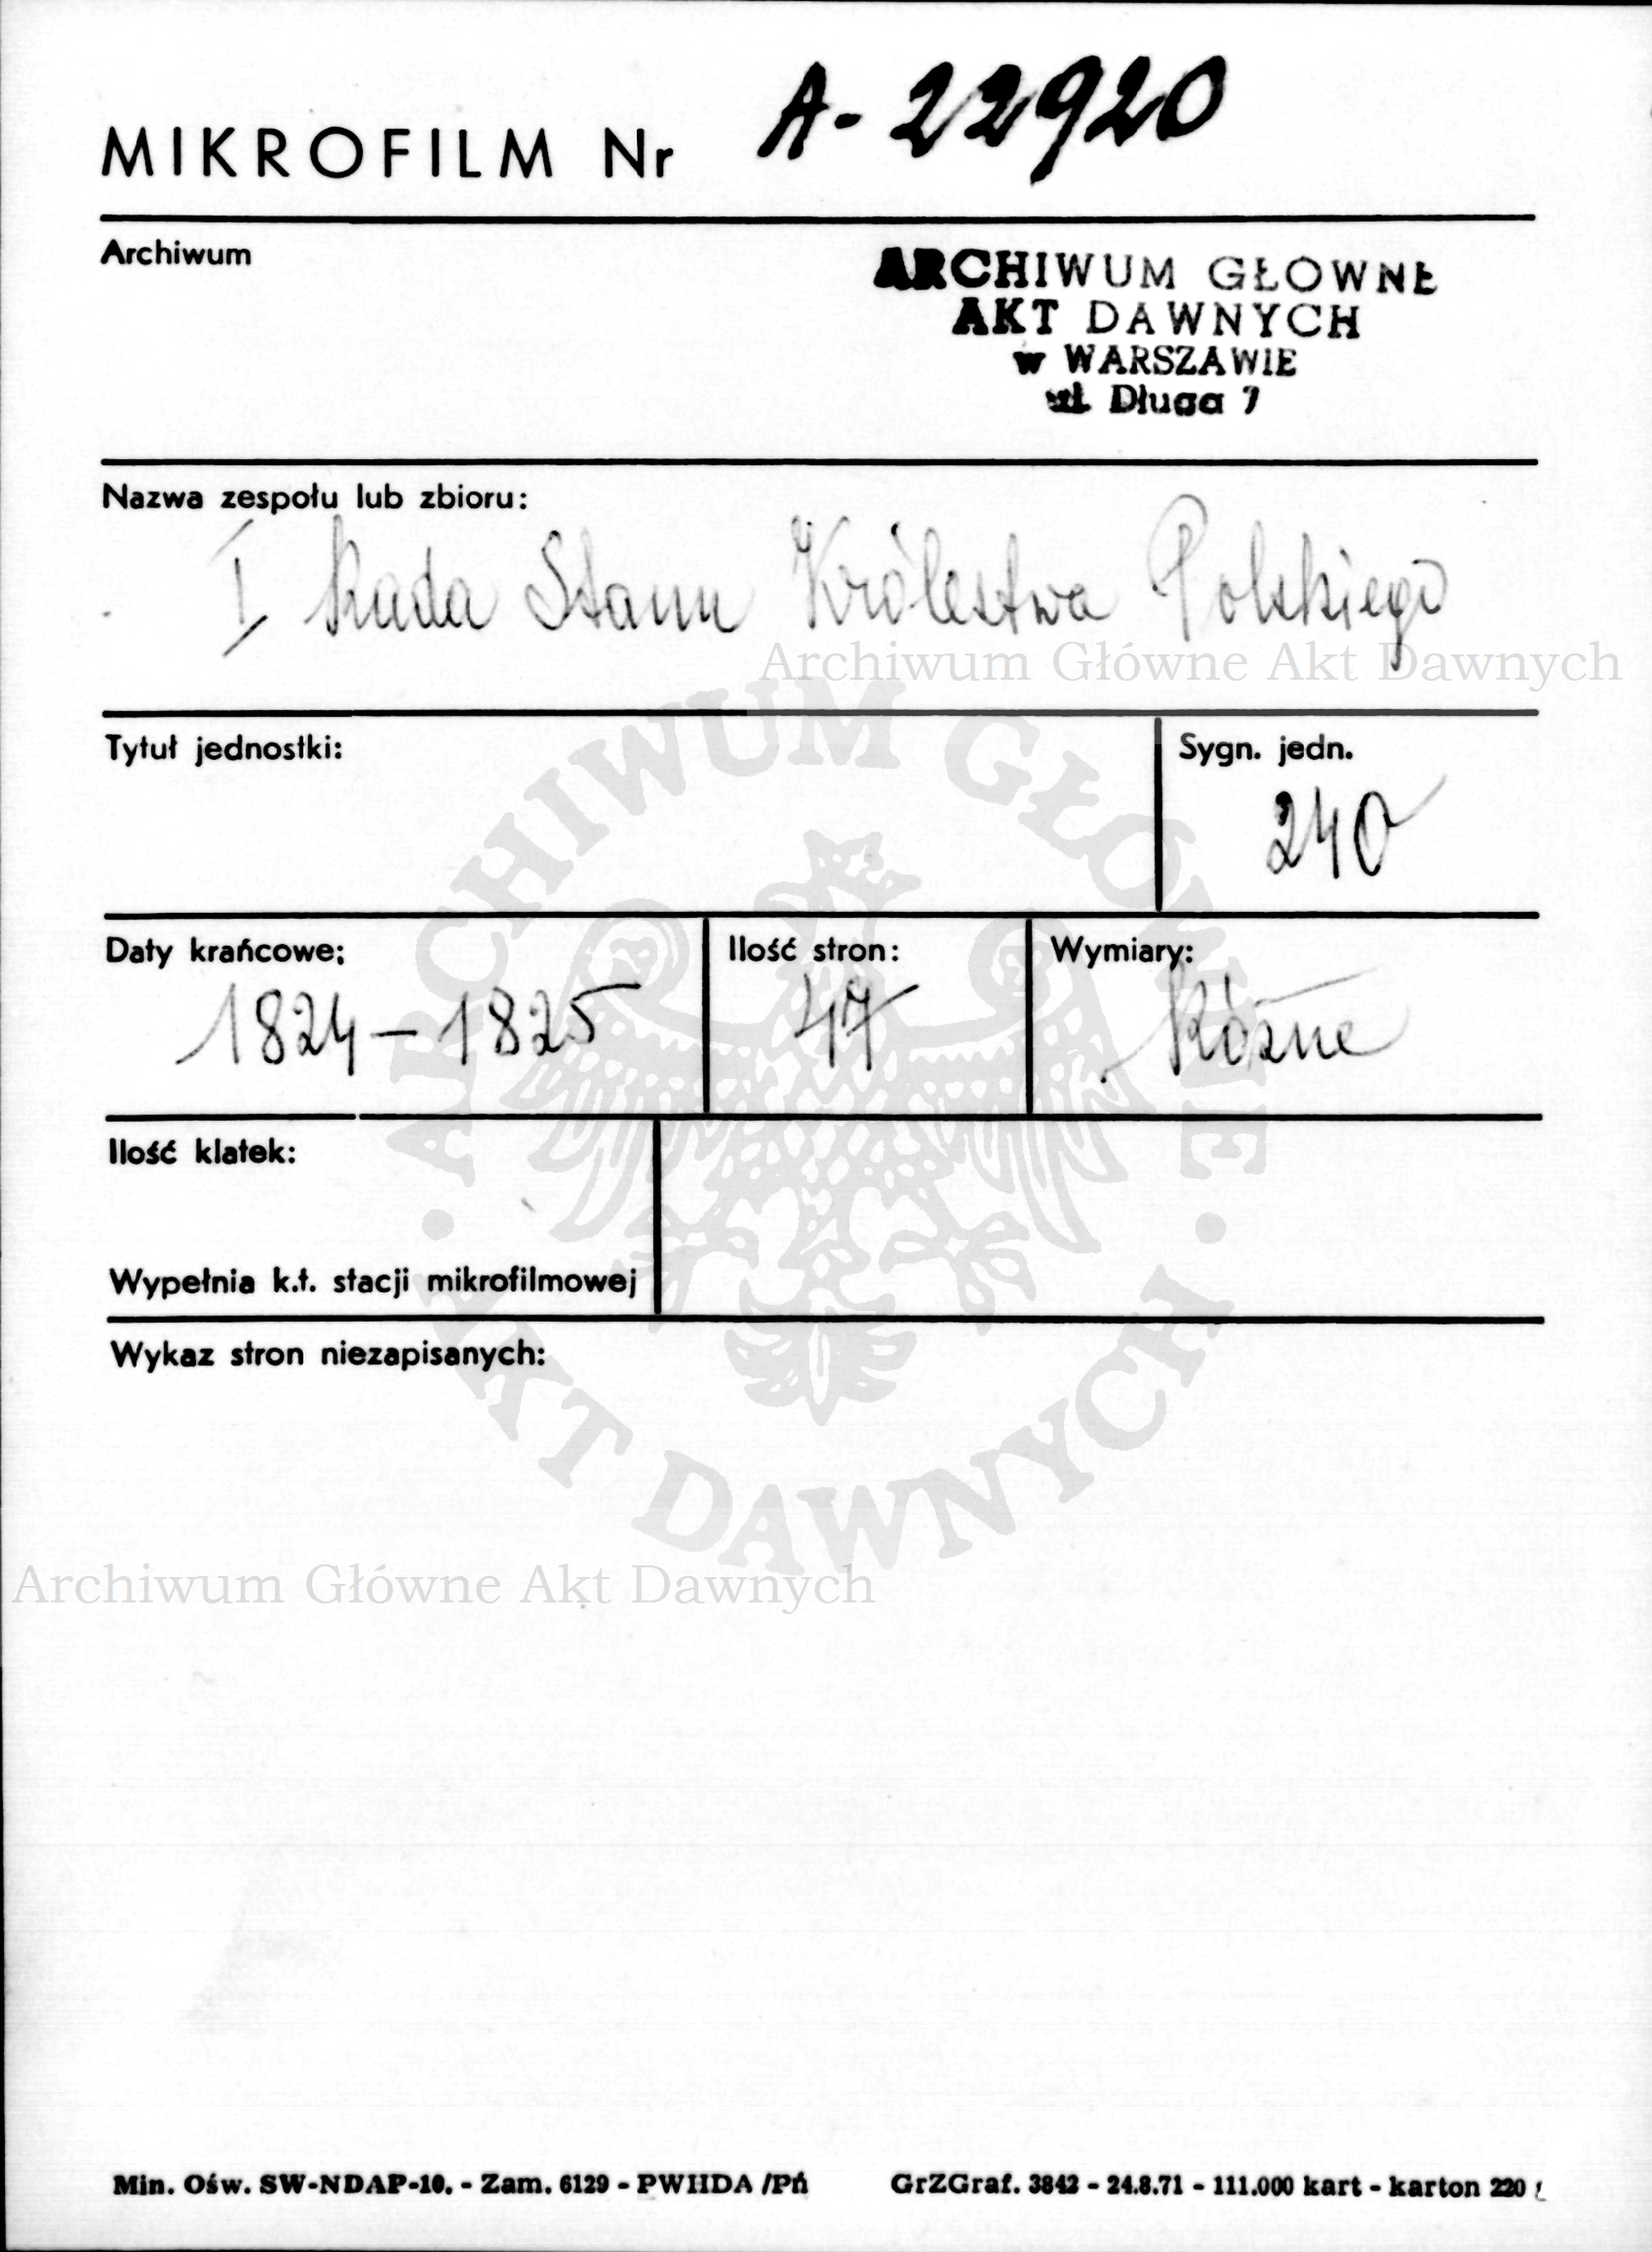 MIKROFILM Nr A-22920
Archiwum
ARCHIWUM GŁOWNE
AKT DAWNYCH
w WARSZAWIE
ul. Długa 7
Nazwa zespołu lub zbioru:
I Rada Stanu Królestwa Polskiego
Archiwum Główne Akt Dawnych
Tytuł jednostki:
Sygn. jedn.
240
Daty krańcowe:
1824-1825
Ilość stron:
47
Wymiary:
Różne
Ilość klatek:
Wypełnia k.t. stacji mikrofilmowej
Wykaz stron niezapisanych:
ARCHIWUM GŁÓWNE
AKT DAWNYCH
Archiwum Główne Akt Dawnych
Min. Ośw. SW-NDAP-10. - Zam. 6129 - PWHDA /Pń GrZGraf. 3842 - 24.8.71 - 111.000 kart - karton 220